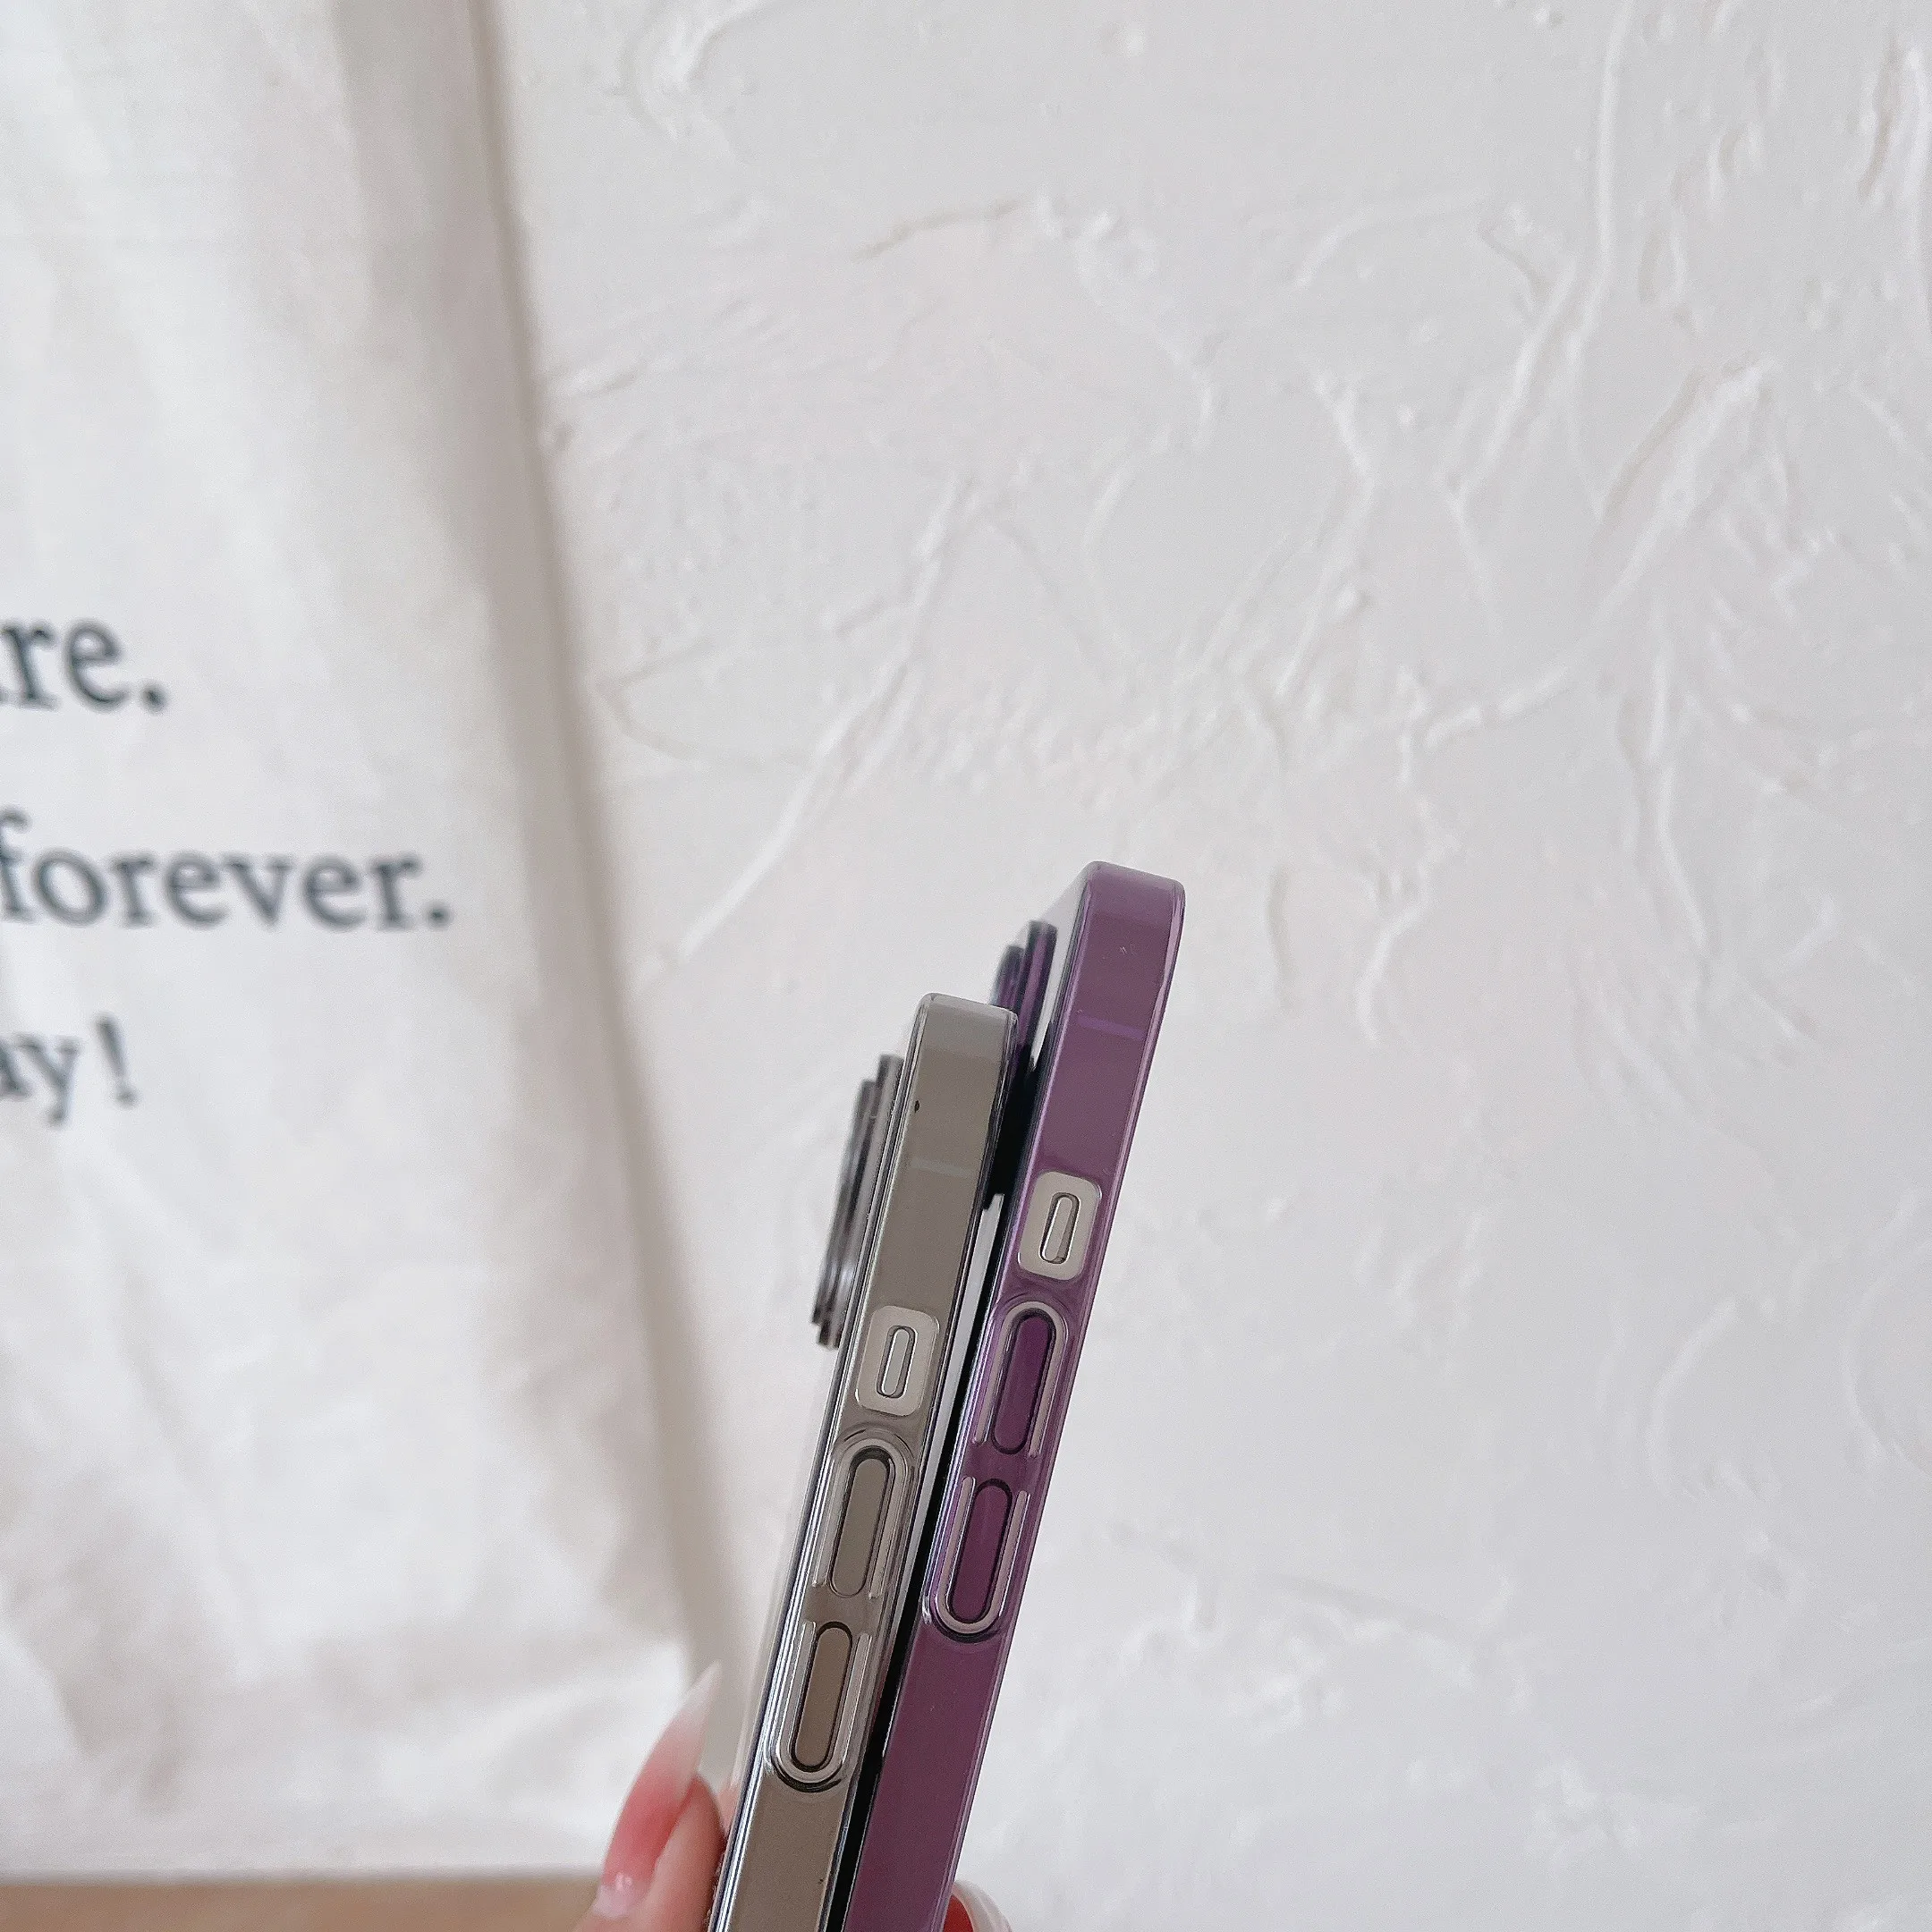 re.
forever.
ay!